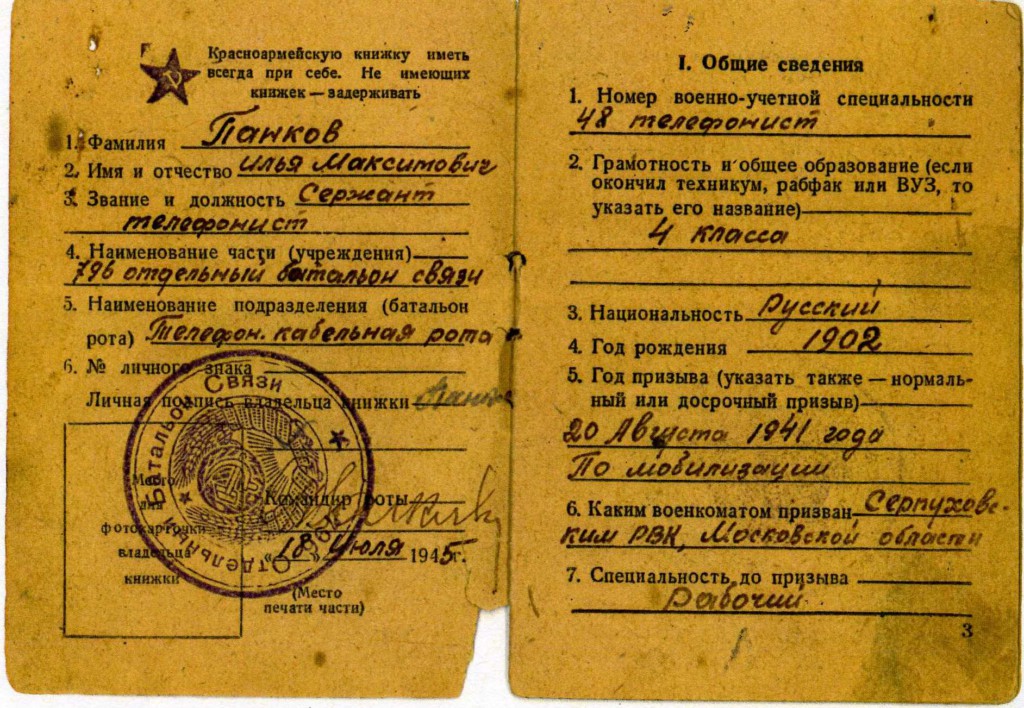 Красноармейскую книжку иметь
всегда при себе. Не имеющих
книжек — задерживать
1. Фамилия Панков
2. Имя и отчество Илья Максимович
3. Звание и должность Сержант
телефонист
4. Наименование части (учреждения)
796 отдельный батальон связи
5. Наименование подразделения (батальон
рота) Телефон. кабельная рота
6. № личного знака
Личная подпись владельца книжки
Отдельный Батальон Связи
Место
для
фотокарточки
владельца
книжки
Командир роты
„18" Июля 1945г.
(Место
печати части)
I. Общие сведения
1. Номер военно-учетной специальности
48 телефонист
2. Грамотность и общее образование (если
окончил техникум, рабфак или ВУЗ, то
указать его название)
4 класса
3. Национальность Русский
4. Год рождения 1902
5. Год призыва (указать также — нормаль-
ный или досрочный призыв)
20 Августа 1941 года
По мобилизации
6. Каким военкоматом призван Серпуховс-
ким РВК, Московской области
7. Специальность до призыва
Рабочий
3